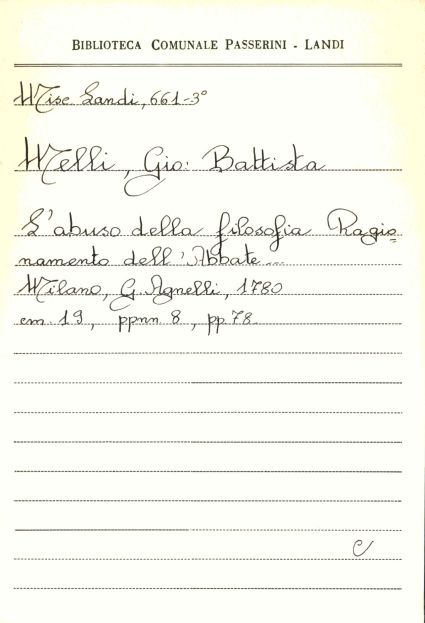 BIBLIOTECA COMUNALE PASSERINI - LANDI
Misc Landi, 661-3°
Melli, Gio: Battista
L'abuso della filosofia Ragio=
namento dell'Abbate...
Milano, G. Agnelli, 1780
cm. 19, ppnn. 8, pp. 78
C